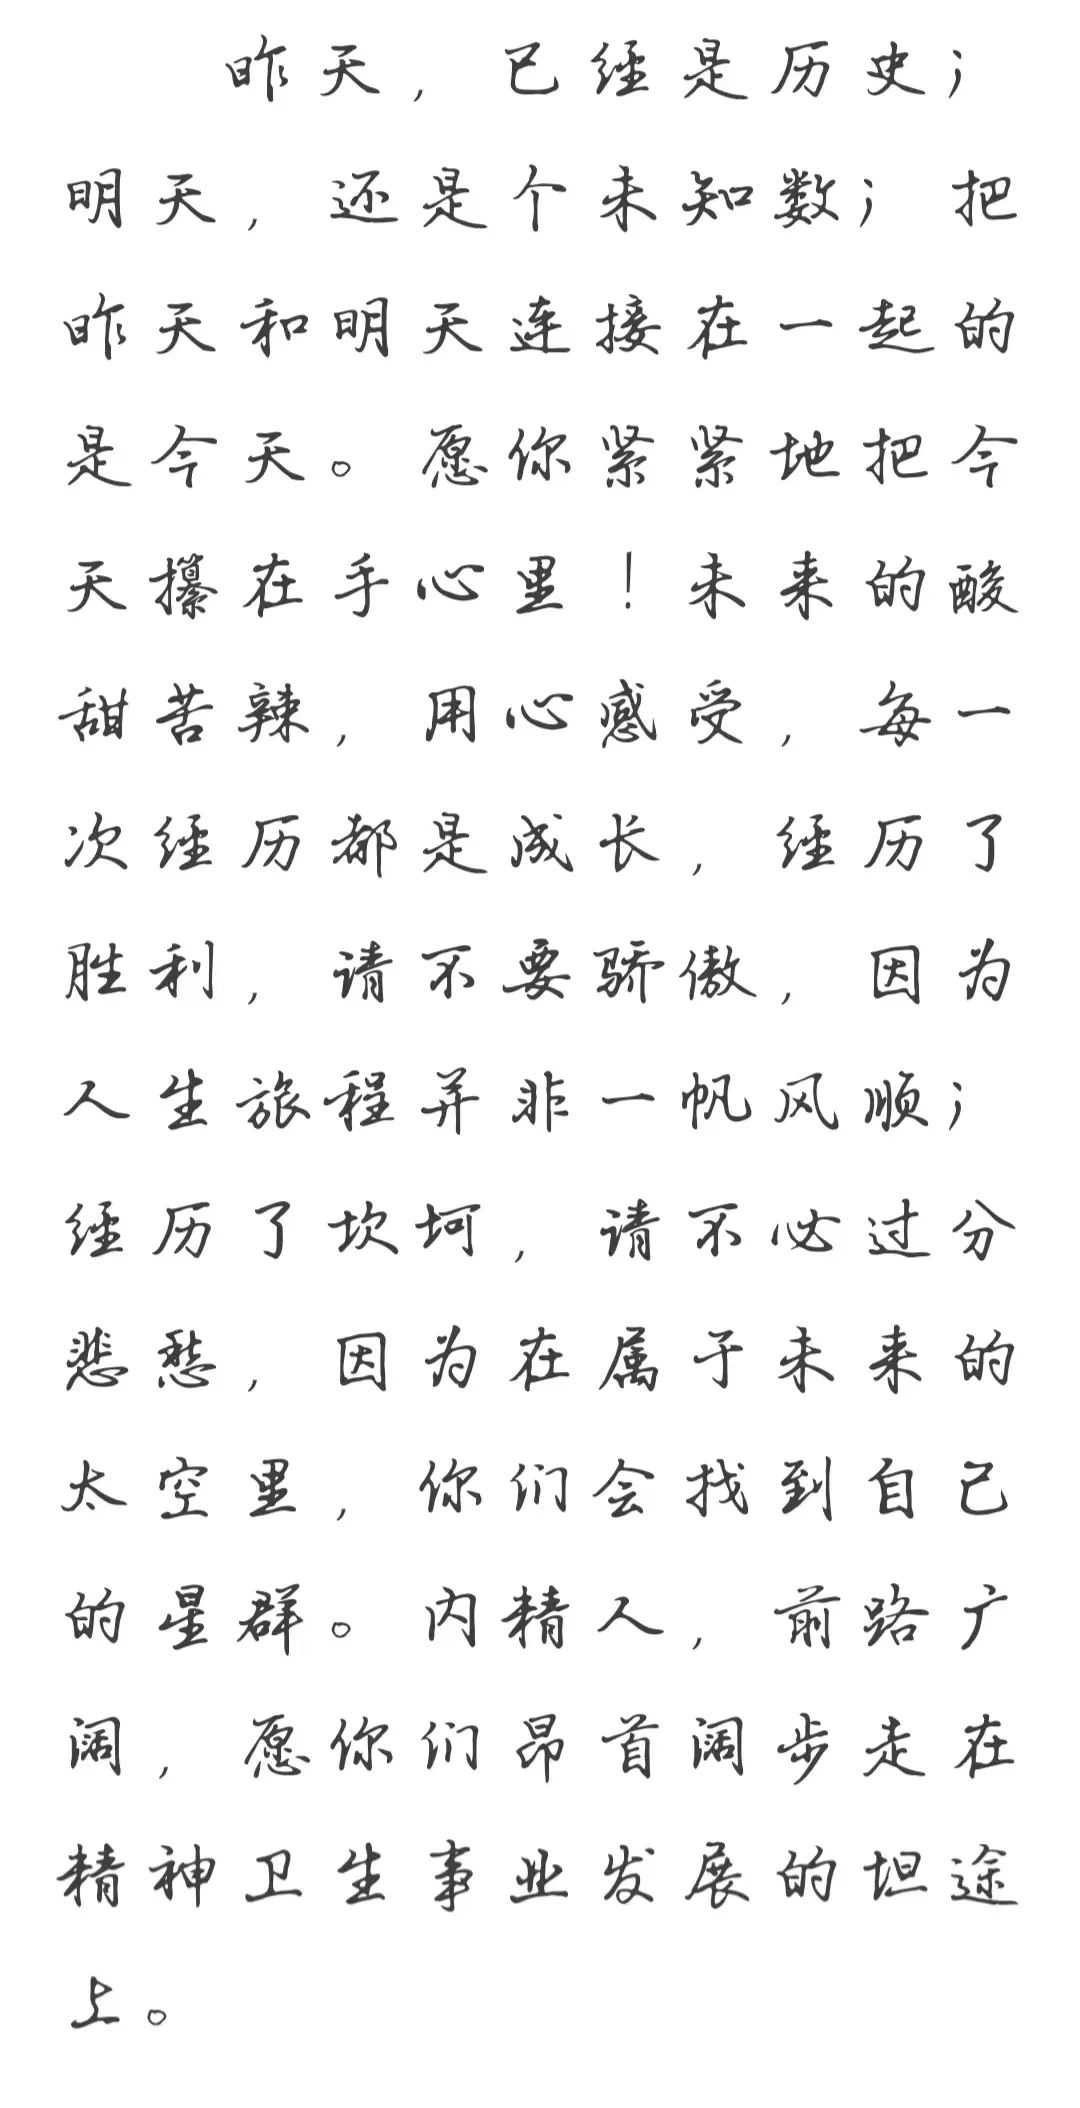 昨天，已经是历史；
明天，还是个未知数；把
昨天和明天连接在一起的
是今天。愿你紧紧地把今
天攥在手心里！未来的酸
甜苦辣，用心感受，每一
次经历都是成长，经历了
胜利，请不要骄傲，因为
人生旅程并非一帆风顺；
经历了坎坷，请不必过分
悲愁，因为在属于未来的
太空里，你们会找到自己
的星群。内精人，前路广
阔，愿你们昂首阔步走在
精神卫生事业发展的坦途
上。